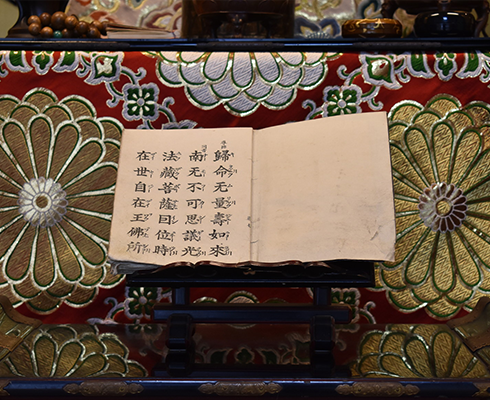 歸命无量壽如來
南无不可思議光
法藏菩薩因位時
在世自在王佛所